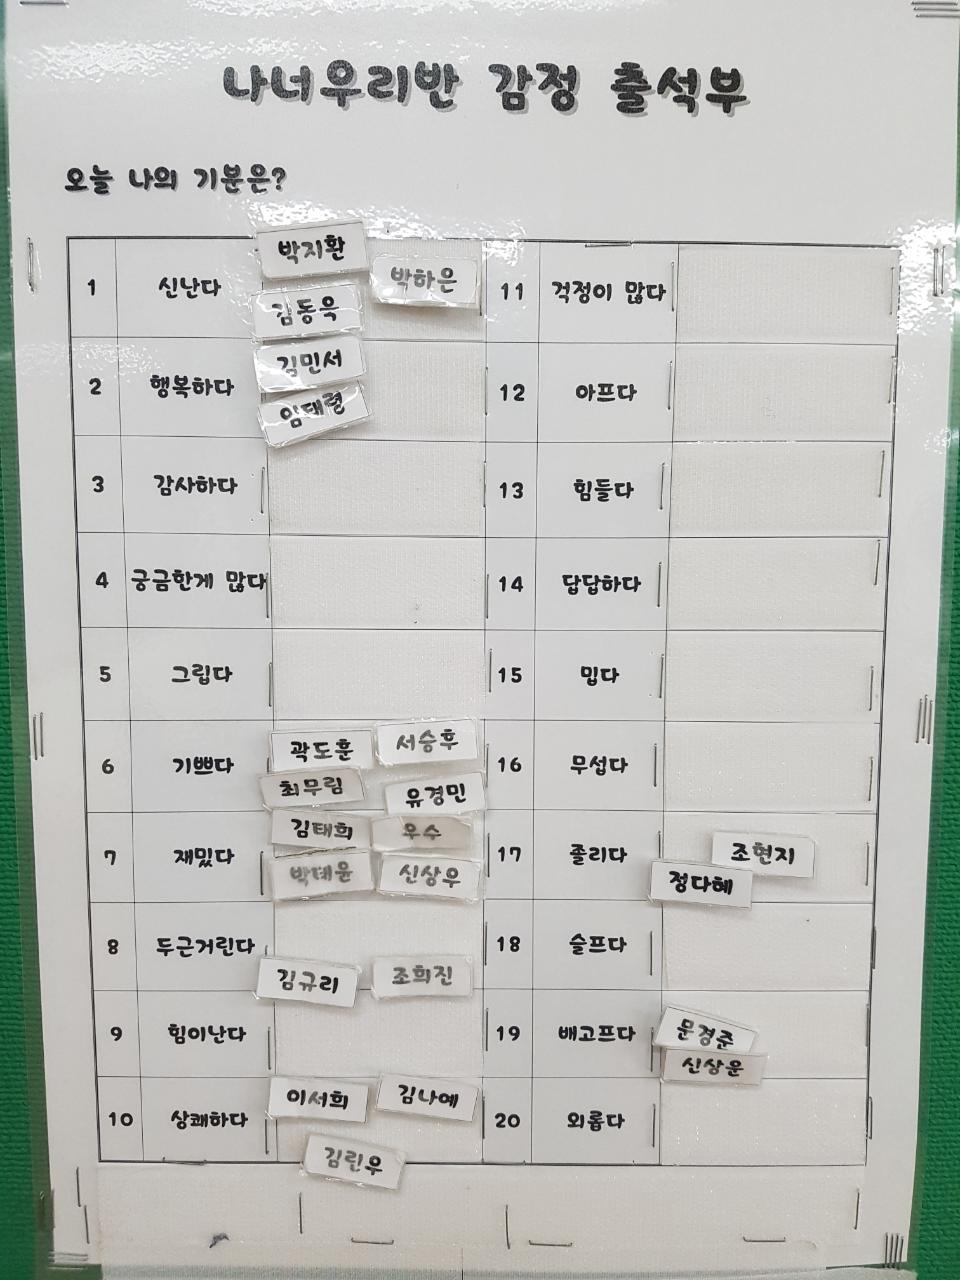 나너우리반 감정 출석부
오늘 나의 기분은?
1 신난다 박지환 박하은 김동욱
2 행복하다 김민서 임태렬
3 감사하다
4 궁금한게 많다
5 그립다
6 기쁘다 곽도훈 서승후 최무림 유경민
7 재밌다 김태희 우수 박태윤 신상우
8 두근거린다
김규리 조희진
9 힘이난다
10 상쾌하다 이서희 김나예
김린우
11 걱정이 많다
12 아프다
13 힘들다
14 답답하다
15 밉다
16 무섭다
17 졸리다 조현지 정다혜
18 슬프다
19 배고프다 문경준 신상운
20 외롭다